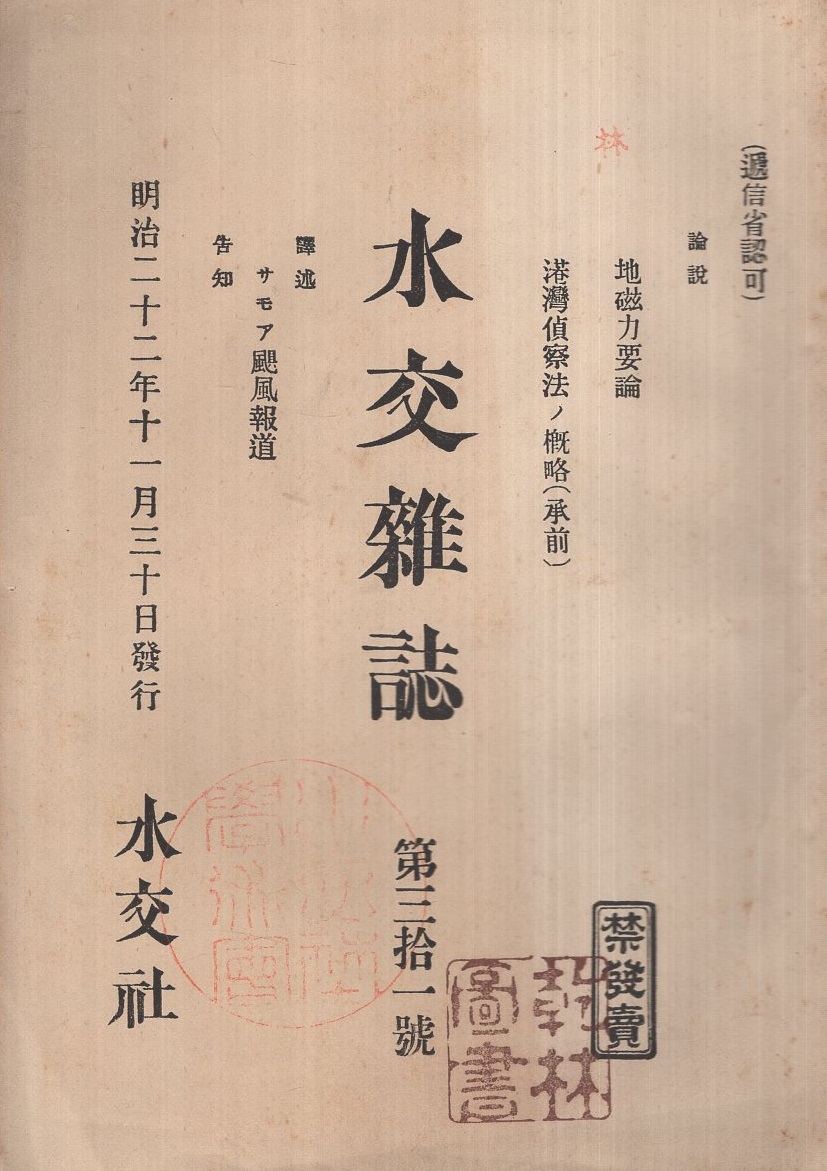 （遞信省認可）
論說
地磁力要論
港灣偵察法ノ槪略（承前）
水交雜誌
第三拾一號
譯述
サモア颶風報道
告知
明治二十二年十一月三十日發行
水交社
禁發賣
林
圖書